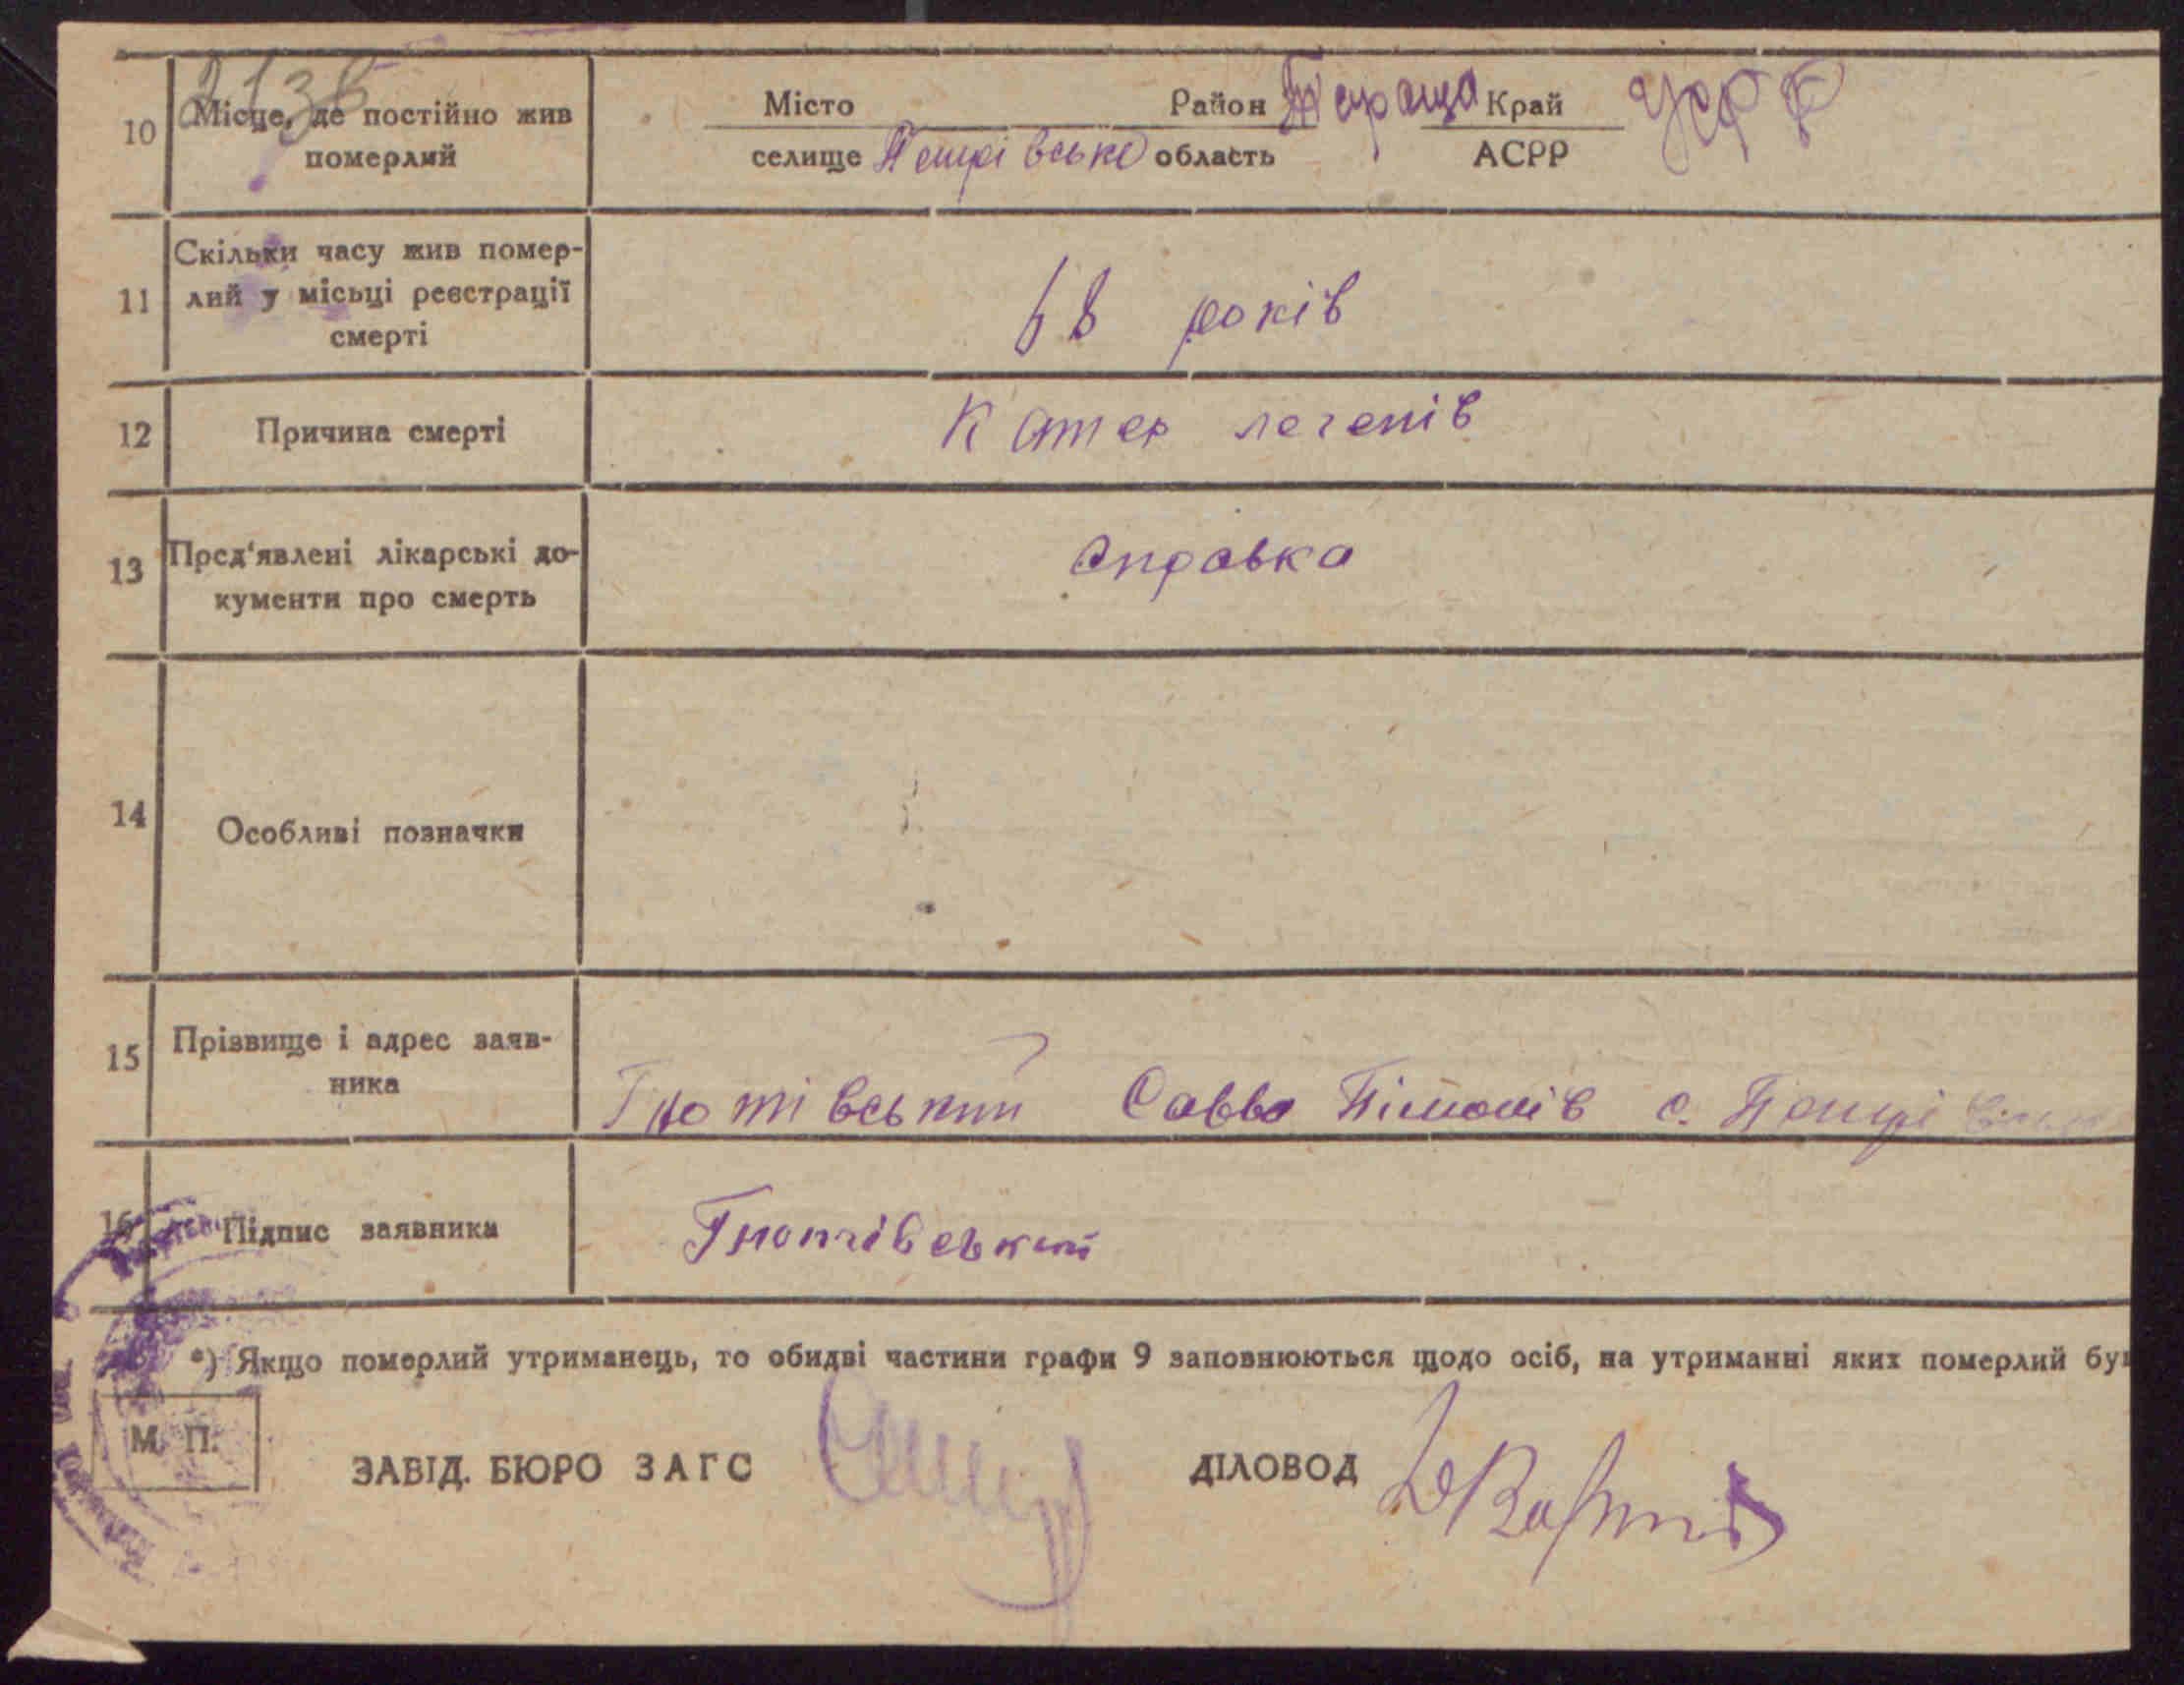 10 Місце, де постійно жив померлий
Місто Район Тараща Край УСРР
селище Петрівське область АСРР
11 Скільки часу жив помер-
лий у місьці реєстрації
смерті
68 років
12 Причина смерті Катар легенів
13 Пред'явлені лікарські до-
кументи про смерть
Справка
14 Особливі позначки
15 Прізвище і адрес заяв-
ника
Гнотівський Савва с. Петрівське
16 Підпис заявника Гнотівський
*) Якщо померлий утриманець, то обидві частини графи 9 заповнюються щодо осіб, на утриманні яких померлий був
М. П.
ЗАВІД. БЮРО ЗАГС ДІЛОВОД